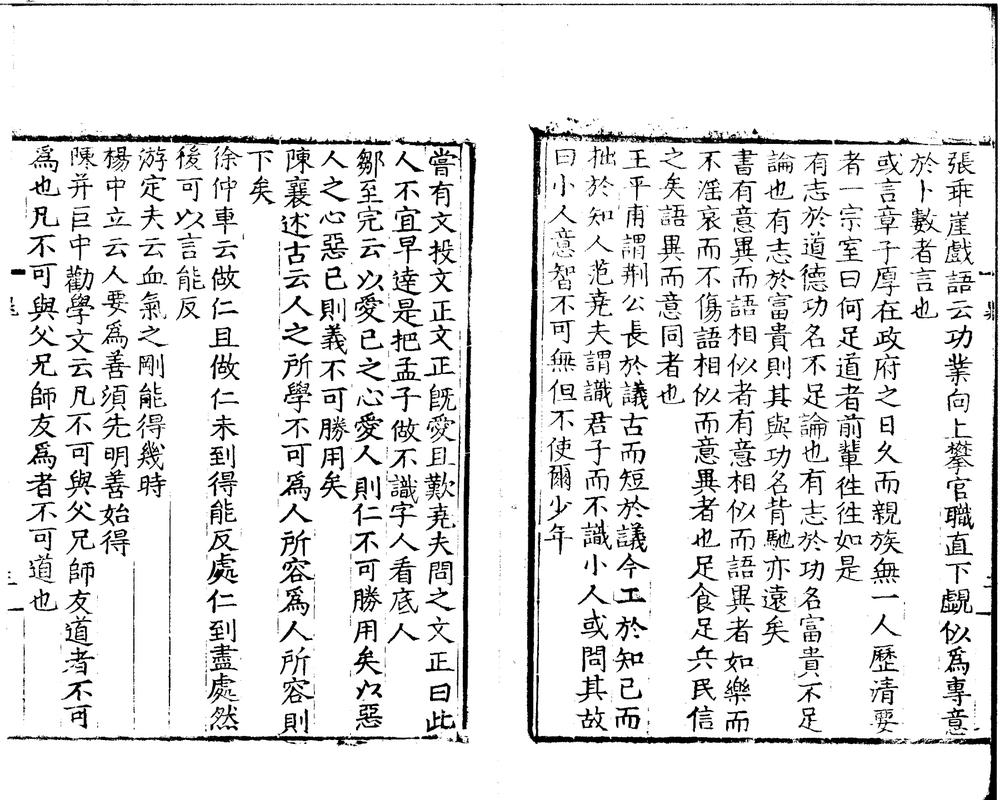 張乖崖戲語云功業向上攀官職直下覷似爲專意
於卜數者言也
或言章子厚在政府之日久而親族無一人歷清要
者一宗室曰何足道者前輩徃徃如是
有志於道德功名不足論也有志於功名富貴不足
論也有志於富貴則其與功名背馳亦遠矣
書有意異而語相似者有意相似而語異者如樂而
不滛哀而不傷語相似而意異者也足食足兵民信
之矣語異而意同者也
王平甫謂荆公長於議古而短於議今工於知已而
拙於知人范尭夫謂識君子而不識小人或問其故
曰小人意智不可無但不使爾少年
嘗有文投文正文正旣愛且歎尭夫問之文正曰此
人不宜早達是把孟子做不識字人看底人
鄒至完云以愛已之心愛人則仁不可勝用矣以惡
人之心惡已則義不可勝用矣
陳襄述古云人之所學不可爲人所容爲人所容則
下矣
徐仲車云做仁且做仁未到得能反處仁到盡處然
後可以言能反
游定夫云血氣之剛能得幾時
楊中立云人要爲善須先明善始得
陳并巨中勸學文云凡不可與父兄師友道者不可
爲也凡不可與父兄師友爲者不可道也